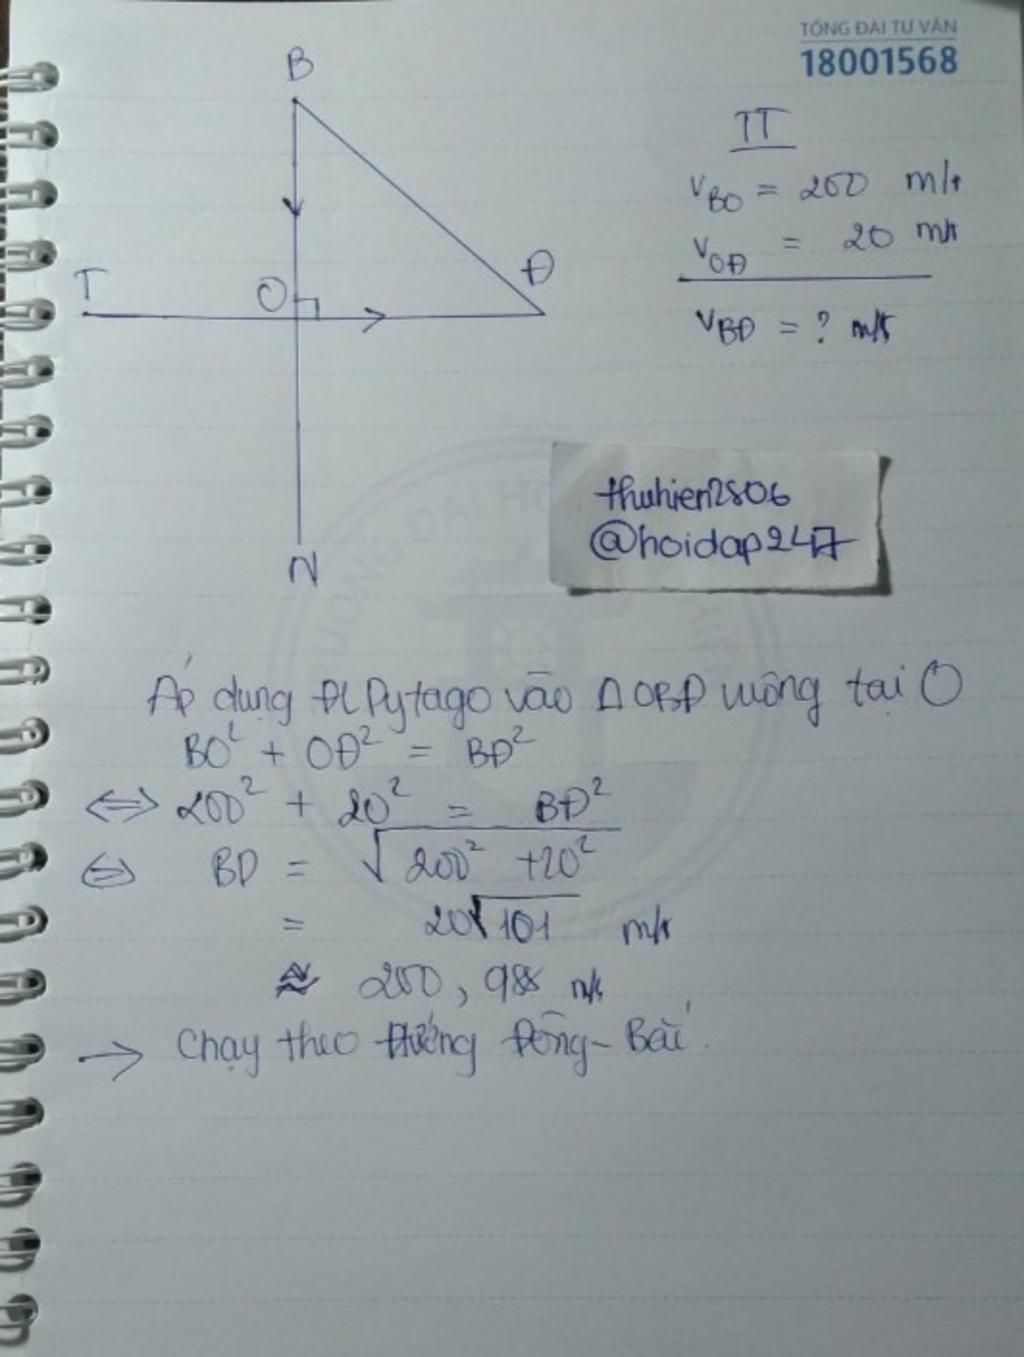 TỔNG ĐÀI TƯ VẤN
18001568
B
TT
V_BO = 200 m/s
V_OĐ = 20 m/s
V_BĐ = ? m/s
T
O
Đ
N
thuhien2806
@hoidap247
Áp dụng ĐL Pytago vào Δ OBĐ vuông tại O
BO² + OĐ² = BĐ²
⇔ 200² + 20² = BĐ²
⇔ BĐ = √200² + 20²
= 20√101 m/s
≈ 200,998 m/s
→ Chạy theo Hướng Đông - Bắc.